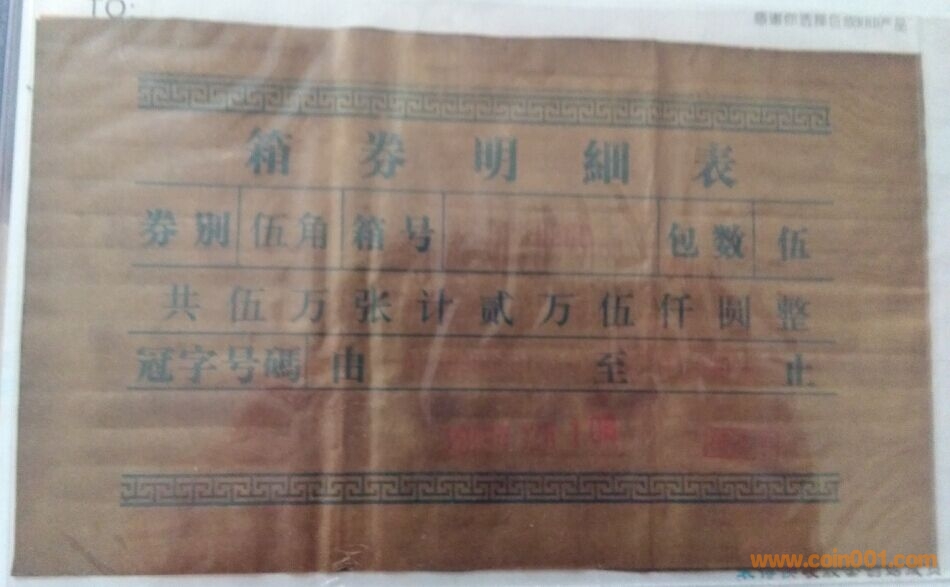 TO:
箱券明細表
券別 伍角 箱号 包数 伍
共伍万张计贰万伍仟圆整
冠字号碼 由 至 止
www.coin001.com